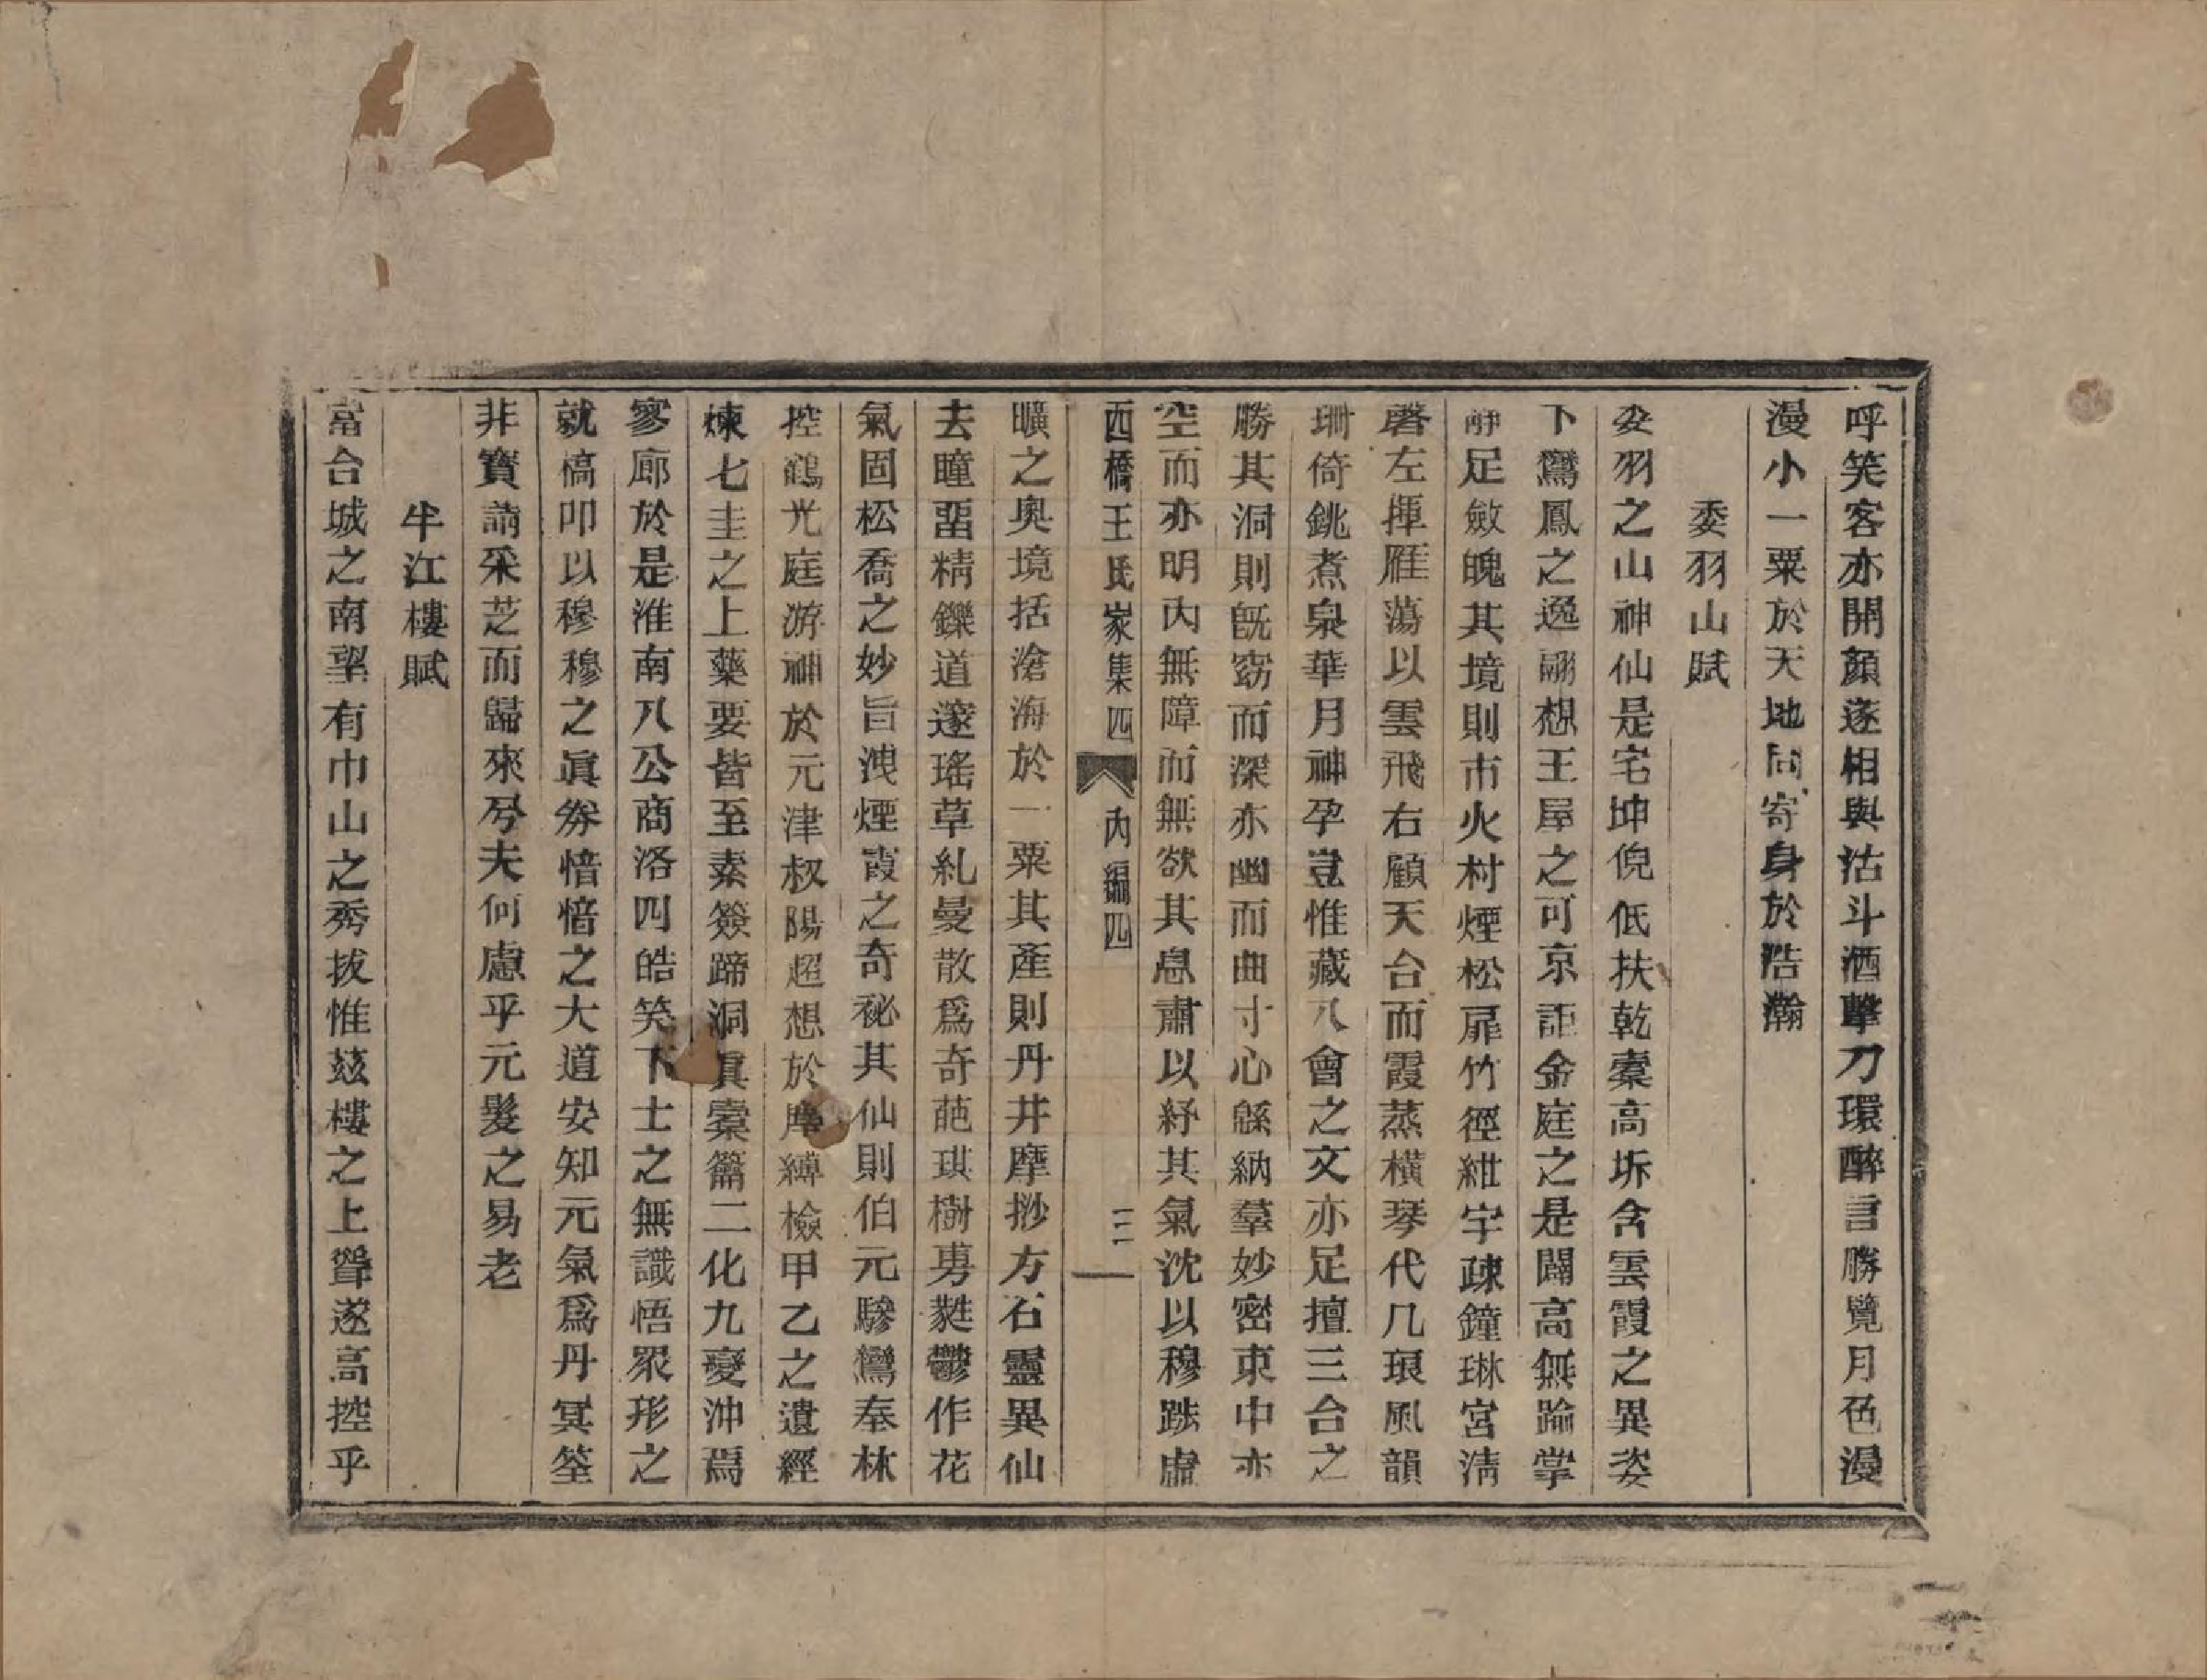 呼笑客亦開顏遂相與沽斗酒擊刀環醉言勝覽月色漫
漫小一粟於天地同寄身於浩瀚
委羽山賦
委羽之山神仙是宅坤倪低扶乾橐高坼含雲霞之異姿
下鸞鳳之逸翮想王屋之可京詎金庭之是闢高無踰掌
靜足斂魄其境則市火村煙松扉竹徑紺宇疎鐘琳宮淸
磬左揮雁蕩以雲飛右顧天台而霞蒸橫琴代几琅風韻
珊倚銚煮泉華月神孕豈惟藏八會之文亦足擅三台之
勝其洞則旣窈而深亦幽而曲寸心緜納羣妙密束中亦
空而亦明內無障而無欲其息肅以紓其氣沈以穆跌虛
西橋王氏家集四 內編四 三一
曠之奧境括滄海於一粟其產則丹井摩挱方石靈異仙
去疃畱精鑠道邃瑤草糺曼散爲奇葩琪樹旉蕤鬱作花
氣固松喬之妙旨洩煙霞之奇秘其仙則伯元驂鸞奉林
控鶴光庭游神於元津叔陽超想於摩縛檢甲乙之遺經
煉七圭之上藥要皆至素簽蹄洞眞橐籥二化九變沖焉
寥廓於是淮南八公商洛四皓笑下士之無識悟眾形之
就槁叩以穆穆之眞券愔愔之大道安知元氣爲丹冥筌
非寶請采芝而歸來兮夫何慮乎元髮之易老
半江樓賦
當台城之南望有巾山之秀拔惟茲樓之上聳遂高控乎